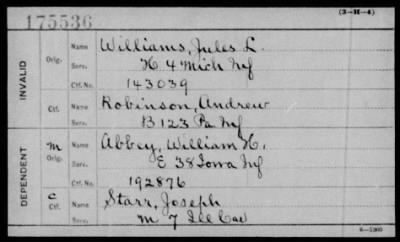 (3-H-4)
175536
INVALID
Orig. Name Williams, Jules L.
Serv. K 4 Mich Inf
Ctf. No. 143039
Ctf. Name Robinson, Andrew
Serv. B 123 Pa Inf
DEPENDENT
m Orig. Name Abbey, William H.
Serv. E 38 Iowa Inf
Ctf. No. 192876
c Ctf. Name Starr, Joseph
Serv. M 7 Ill Cav